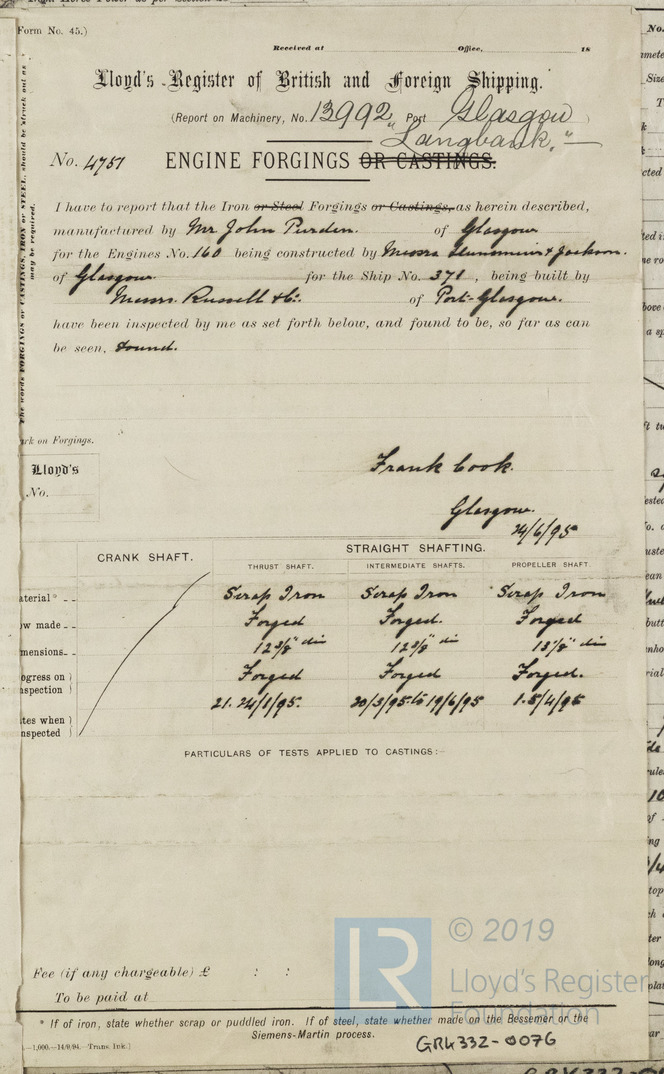 Form No. 45.)
Received at Office, 18
Lloyd's Register of British and Foreign Shipping.
(Report on Machinery, No. 13992 Port Glasgow )
"Langbank,"
No. 4751 ENGINE FORGINGS OR CASTINGS.
I have to report that the Iron or Steel Forgings or Castings, as herein described,
manufactured by Mr John Purden. of Glasgow
for the Engines No. 160 being constructed by Messrs & Jackson.
of Glasgow for the Ship No. 371, being built by
Messrs. Russell & Co. of Port-Glasgow.
have been inspected by me as set forth below, and found to be, so far as can
be seen, sound.
The words FORGINGS or CASTINGS, IRON or STEEL, should be struck out as
may be required.
rk on Forgings.
Lloyd's
No.
Frank Cook.
Glasgow.
24/6/95
CRANK SHAFT. STRAIGHT SHAFTING.
THRUST SHAFT. INTERMEDIATE SHAFTS. PROPELLER SHAFT.
aterial* Scrap Iron Scrap Iron Scrap Iron
ow made Forged Forged. Forged
mensions 12 3/8" dia 12 3/8" dia 13 1/8" dia
ogress on nspection Forged Forged Forged.
tes when nspected 21. 24/1/95. 20/3/95 to 19/6/95 1. 5/4/95
PARTICULARS OF TESTS APPLIED TO CASTINGS:–
Fee (if any chargeable) £ : :
To be paid at
* If of iron, state whether scrap or puddled iron. If of steel, state whether made on the Bessemer or the
Siemens-Martin process.
—1,000.—14/9/94.—Trans. Ink.]
GRK332-0076
© 2019
LR
Lloyd's Register
Foundation